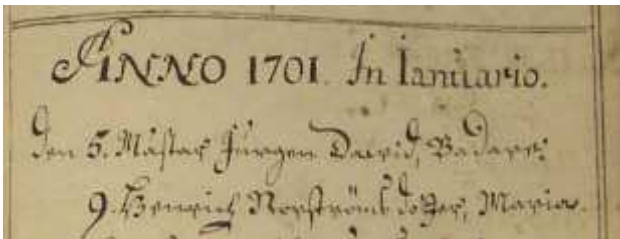 ANNO 1701. In Ianuario.
Den 5. Mästar Jürgen David, Badare:
9. Henrich Norströms dotter, Maria.